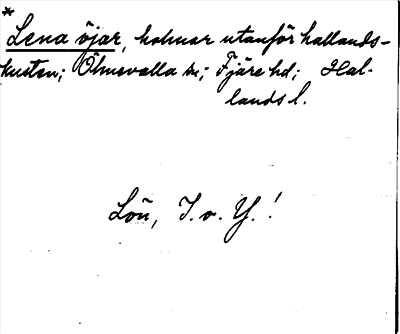 *
Lena öjar, holmar utanför hallands-
kusten; Ölmevalla sn; Fjäre hd; Hal-
lands l.
Loñ, I. o. Y. !